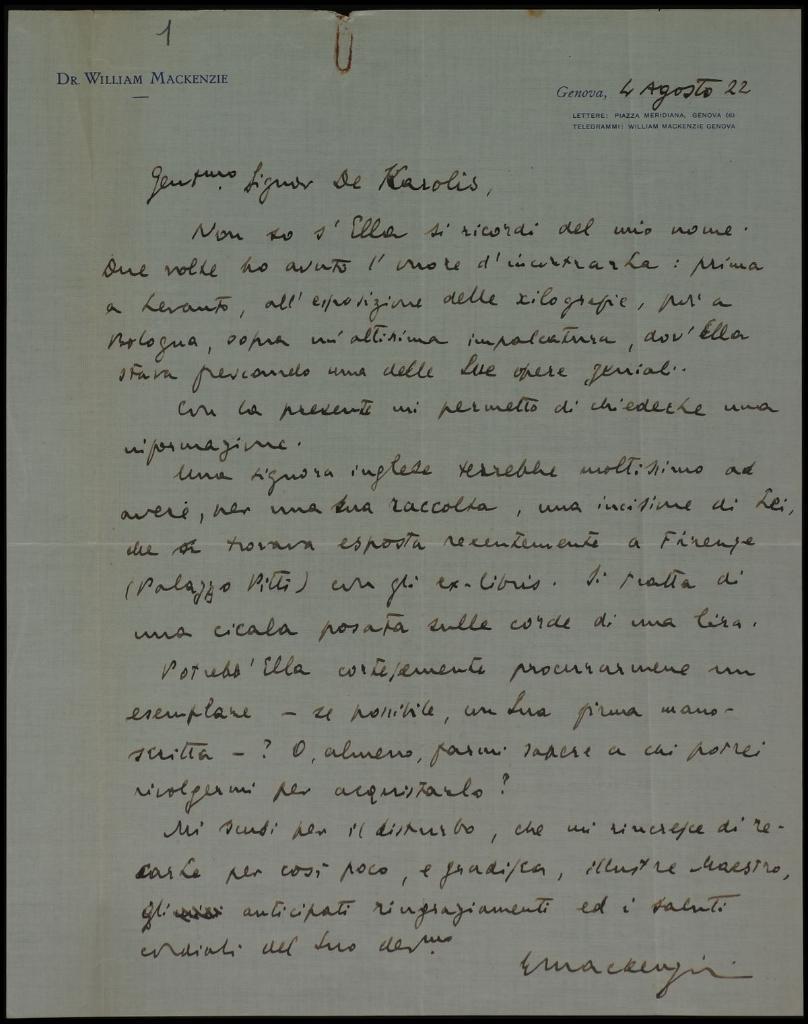 1
DR. WILLIAM MACKENZIE
Genova, 4 Agosto 22
LETTERE: PIAZZA MERIDIANA, GENOVA
TELEGRAMMI: WILLIAM MACKENZIE GENOVA
Gentmo. Signor De Karolis,
Non so s' Ella si ricordi del mio nome.
Due volte ho avuto l' onore d' incontrarLa: prima
a Levanto, all' esposizione delle xilografie, poi a
Bologna, sopra un' altissima impalcatura, dov' Ella
stava frescando una delle Sue opere geniali.
Con la presente mi permetto di chiederLe una
informazione.
Una signora inglese terrebbe moltissimo ad
avere, per una sua raccolta, una incisione di Lei,
che si trovava esposta recentemente a Firenze
(Palazzo Pitti) con gli ex-libris. Si tratta di
una cicala posata sulle corde di una lira.
Potrebb' Ella cortesemente procurarmene un
esemplare - se possibile, con Sua firma mano-
scritta - ? O, almeno, farmi sapere a cui potrei
rivolgermi per acquistarlo?
Mi scusi per il disturbo, che mi rincresce di re-
carLe per così poco, e gradisca, illustre Maestro,
gli anticipati ringraziamenti ed i saluti
cordiali del Suo devmo
WMackenzie